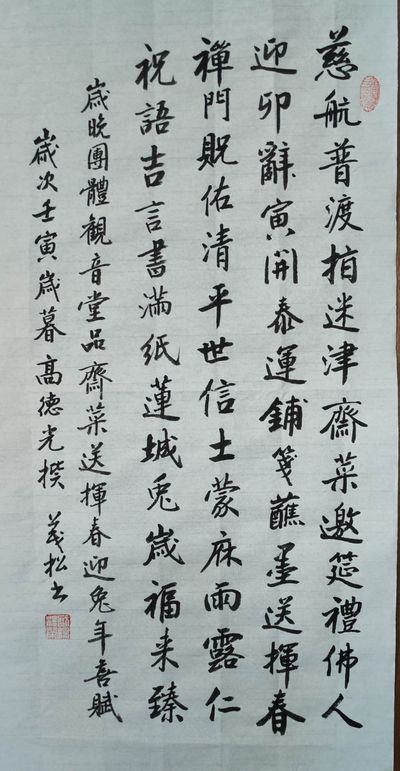 慈航普渡指迷津齋菜邀筵禮佛人
迎卯辭寅開泰運鋪箋蘸墨送揮春
禪門貺佑清平世信士蒙庥雨露仁
祝語吉言書滿紙蓮城兔歲福来臻
歲晚團體観音堂品齋菜送揮春迎兔年喜賦
歲次壬寅歲暮高德光撰 松书